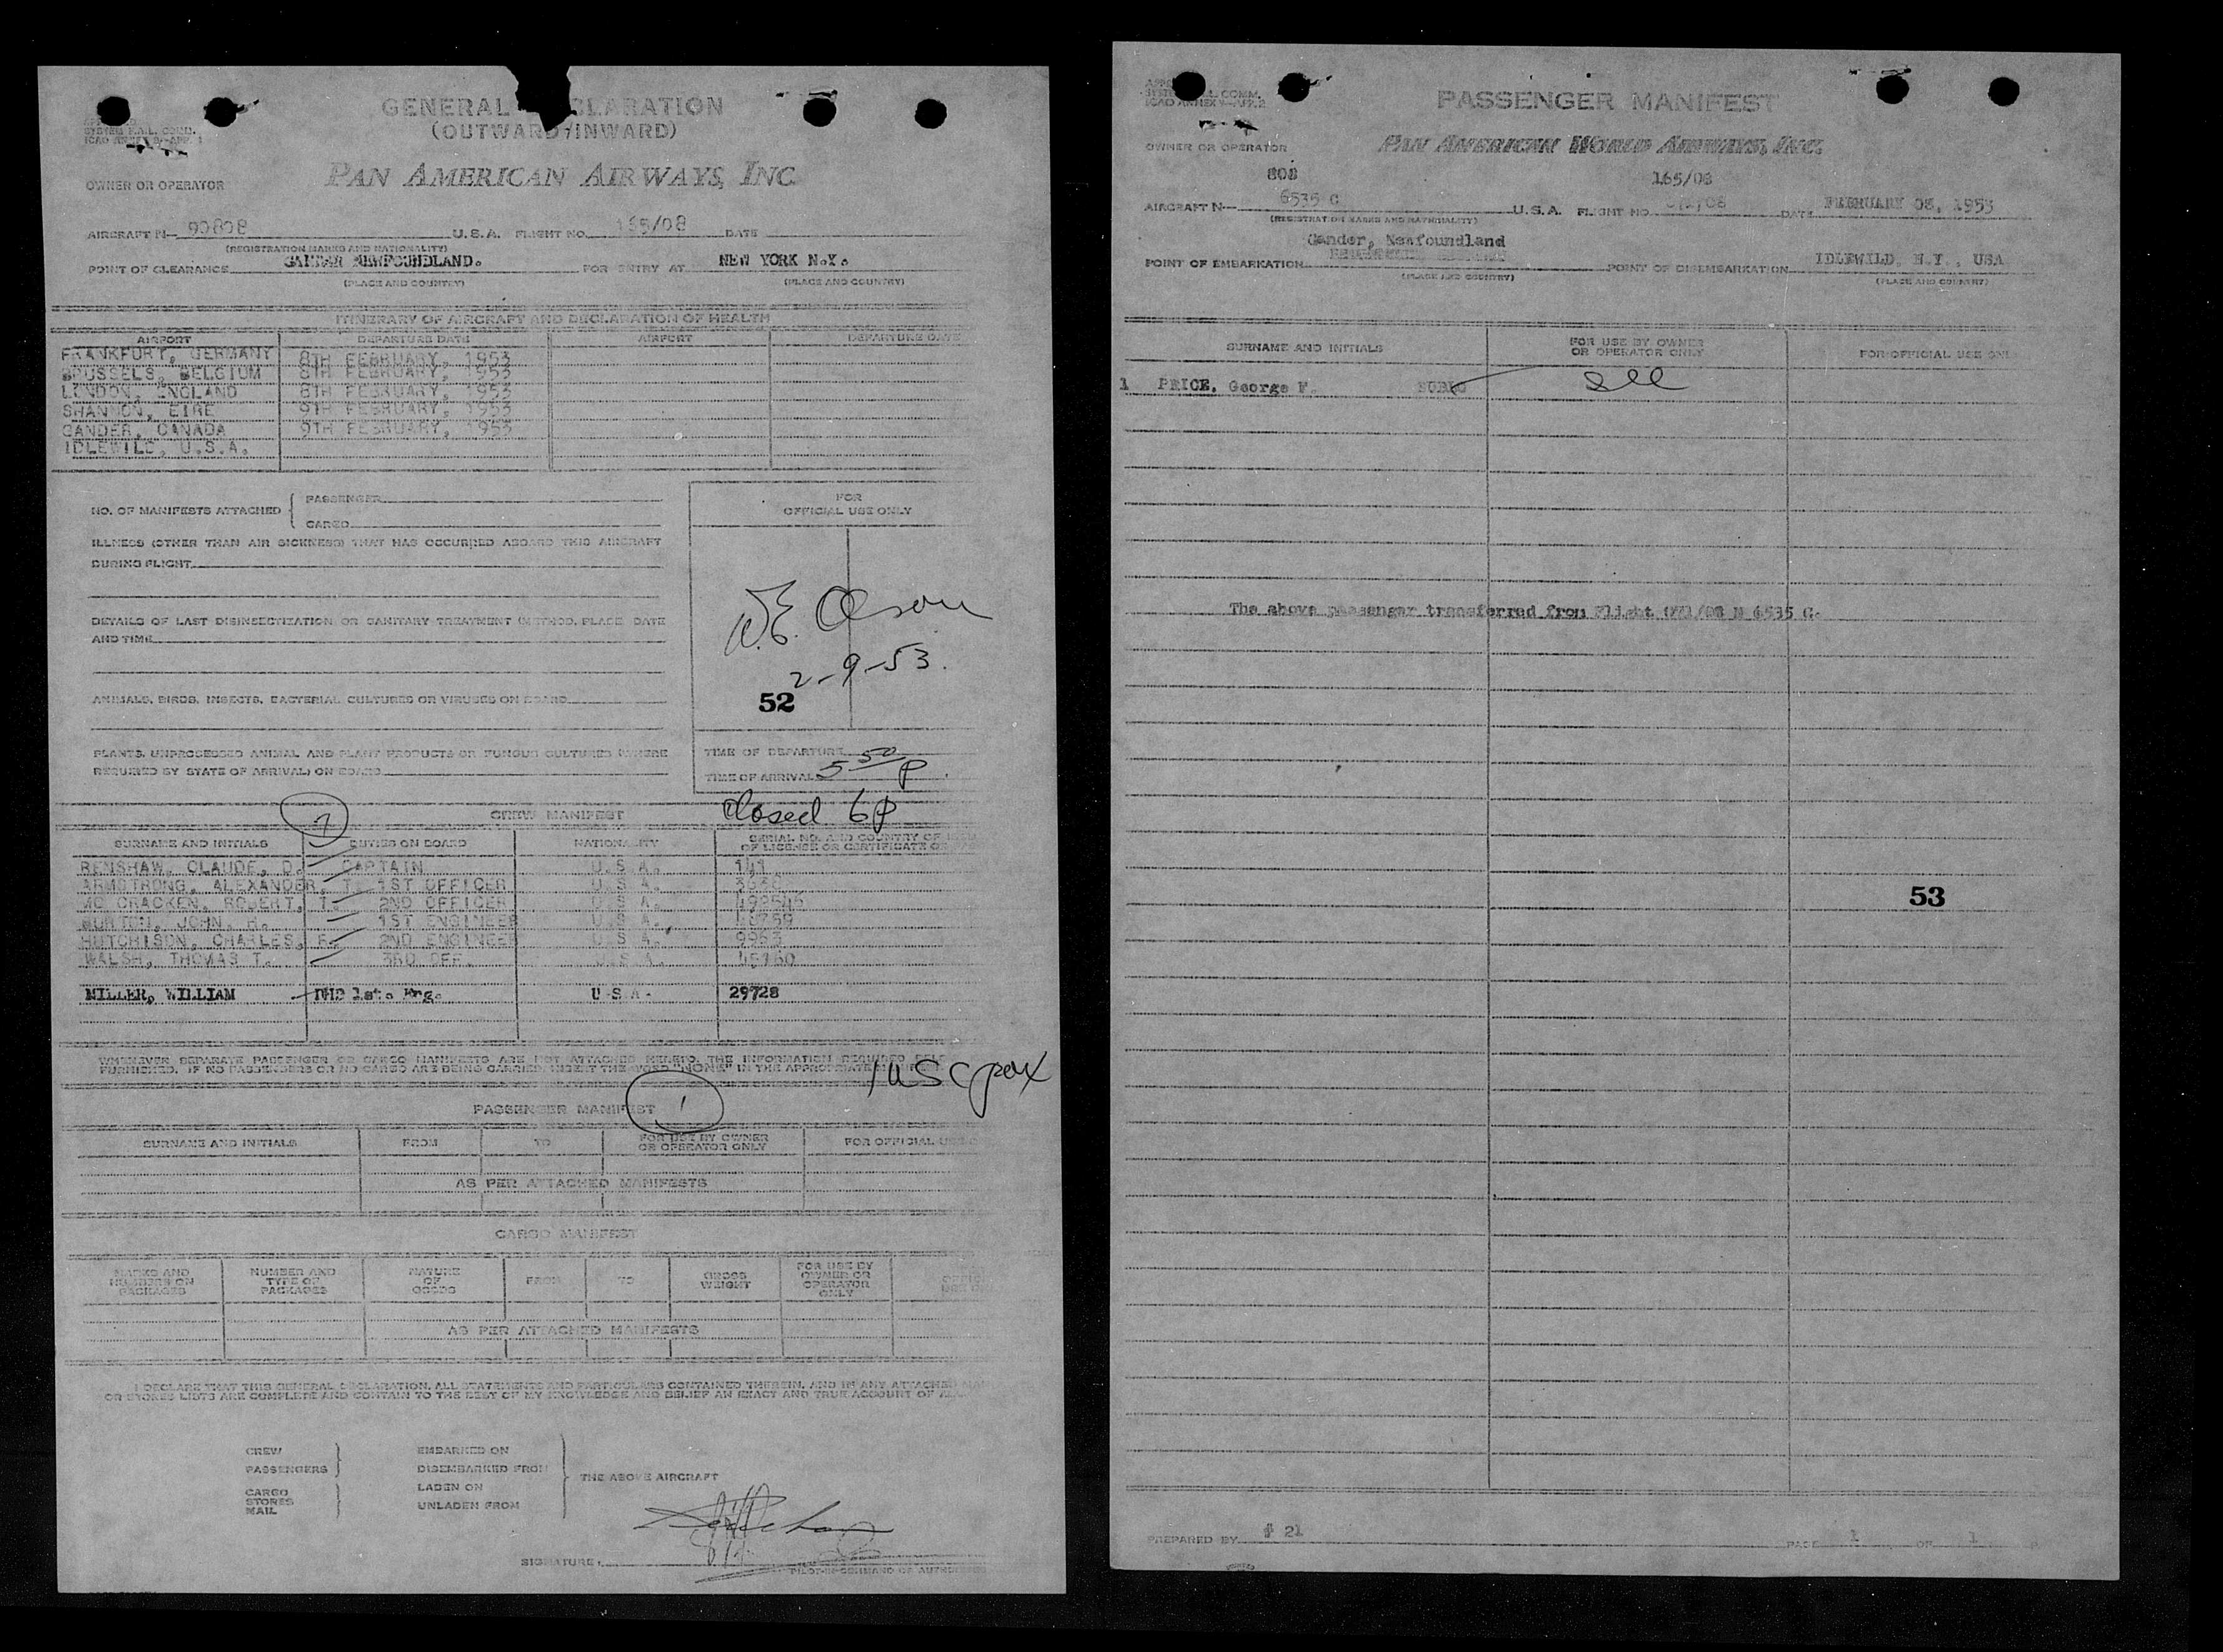 GENERAL DECLARATION
(OUTWARD/INWARD)
SYSTEM F.A.L. COMM.
OWNER OR OPERATOR PAN AMERICAN AIRWAYS, INC
AIRCRAFT N— 90808 U.S.A. FLIGHT NO. 165/08 DATE
(REGISTRATION MARKS AND NATIONALITY)
POINT OF CLEARANCE GANDER NEWFOUNDLAND. FOR ENTRY AT NEW YORK N.Y.
(PLACE AND COUNTRY) (PLACE AND COUNTRY)
ITINERARY OF AIRCRAFT AND DECLARATION OF HEALTH
AIRPORT DEPARTURE DATE AIRPORT DEPARTURE DATE
FRANKFURT, GERMANY 8TH FEBRUARY, 1953
BRUSSELS, BELGIUM 8TH FEBRUARY, 1953
LONDON, ENGLAND 8TH FEBRUARY, 1953
SHANNON, EIRE 9TH FEBRUARY, 1953
GANDER, CANADA 9TH FEBRUARY, 1953
IDLEWILD, U.S.A.
NO. OF MANIFESTS ATTACHED { PASSENGER
CARGO
FOR
OFFICIAL USE ONLY
ILLNESS (OTHER THAN AIR SICKNESS) THAT HAS OCCURRED ABOARD THIS AIRCRAFT
DURING FLIGHT
DETAILS OF LAST DISINSECTIZATION OR SANITARY TREATMENT (METHOD, PLACE, DATE
AND TIME
W.E. Olson
2-9-53.
52
ANIMALS, BIRDS, INSECTS, BACTERIAL CULTURES OR VIRUSES ON BOARD
PLANTS, UNPROCESSED ANIMAL AND PLANT PRODUCTS OR FUNGUS CULTURES (WHERE
REQUIRED BY STATE OF ARRIVAL) ON BOARD
TIME OF DEPARTURE
TIME OF ARRIVAL 5 50 P
Closed 6P
7 CREW MANIFEST
SURNAME AND INITIALS DUTIES ON BOARD NATIONALITY SERIAL NO. AND COUNTRY OF
OF LICENSE OR CERTIFICATE OR
RENSHAW, CLAUDE, D. CAPTAIN U.S.A. 141
ARMSTRONG, ALEXANDER, T. 1ST OFFICER U.S.A.
MC CRACKEN, ROBERT, T. 2ND OFFICER U.S.A.
JOHN, 1ST ENGINEER U.S.A.
HUTCHISON, CHARLES, 2ND ENGINEER U.S.A. 9963
WALSH, THOMAS T. 3RD OFF. U.S.A. 45160
MILLER, WILLIAM DHD 1st. Eng. U.S.A. 29728
WHENEVER SEPARATE PASSENGER OR CARGO MANIFESTS ARE NOT ATTACHED HERETO, THE INFORMATION REQUIRED
FURNISHED. IF NO PASSENGERS OR NO CARGO ARE BEING CARRIED INSERT THE WORD "NONE" IN THE APPROPRIATE
1 USC pax
PASSENGER MANIFEST 1
SURNAME AND INITIALS FROM TO FOR USE BY OWNER
OR OPERATOR ONLY FOR OFFICIAL USE
AS PER ATTACHED MANIFESTS
CARGO MANIFEST
MARKS AND
NUMBERS ON
PACKAGES NUMBER AND
TYPE OF
PACKAGES NATURE
OF
GOODS FROM TO GROSS
WEIGHT FOR USE BY
OWNER OR
OPERATOR
ONLY
AS PER ATTACHED MANIFESTS
I DECLARE THAT THIS GENERAL DECLARATION, ALL STATEMENTS AND PARTICULARS CONTAINED THEREIN, AND IN ANY ATTACHED
OR STORES LISTS ARE COMPLETE AND CONTAIN TO THE BEST OF MY KNOWLEDGE AND BELIEF AN EXACT AND TRUE ACCOUNT OF
CREW EMBARKED ON
PASSENGERS DISEMBARKED FROM
THE ABOVE AIRCRAFT
CARGO LADEN ON
STORES
MAIL UNLADEN FROM
SIGNATURE
PILOT-IN-COMMAND OR AUTHORIZED
PASSENGER MANIFEST
OWNER OR OPERATOR PAN AMERICAN WORLD AIRWAYS, INC.
808 165/08
AIRCRAFT N— 6535 C U.S.A. FLIGHT NO. DATE FEBRUARY 08, 1953
(REGISTRATION MARKS AND NATIONALITY)
Gander, Newfoundland
POINT OF EMBARKATION POINT OF DISEMBARKATION IDLEWILD, N.Y., USA
(PLACE AND COUNTRY) (PLACE AND COUNTRY)
SURNAME AND INITIALS FOR USE BY OWNER
OR OPERATOR ONLY FOR OFFICIAL USE ONLY
1 PRICE, George F.
The above passenger transferred from Flight N 6535 C.
53
PREPARED BY # 21 PAGE 1 OF 1